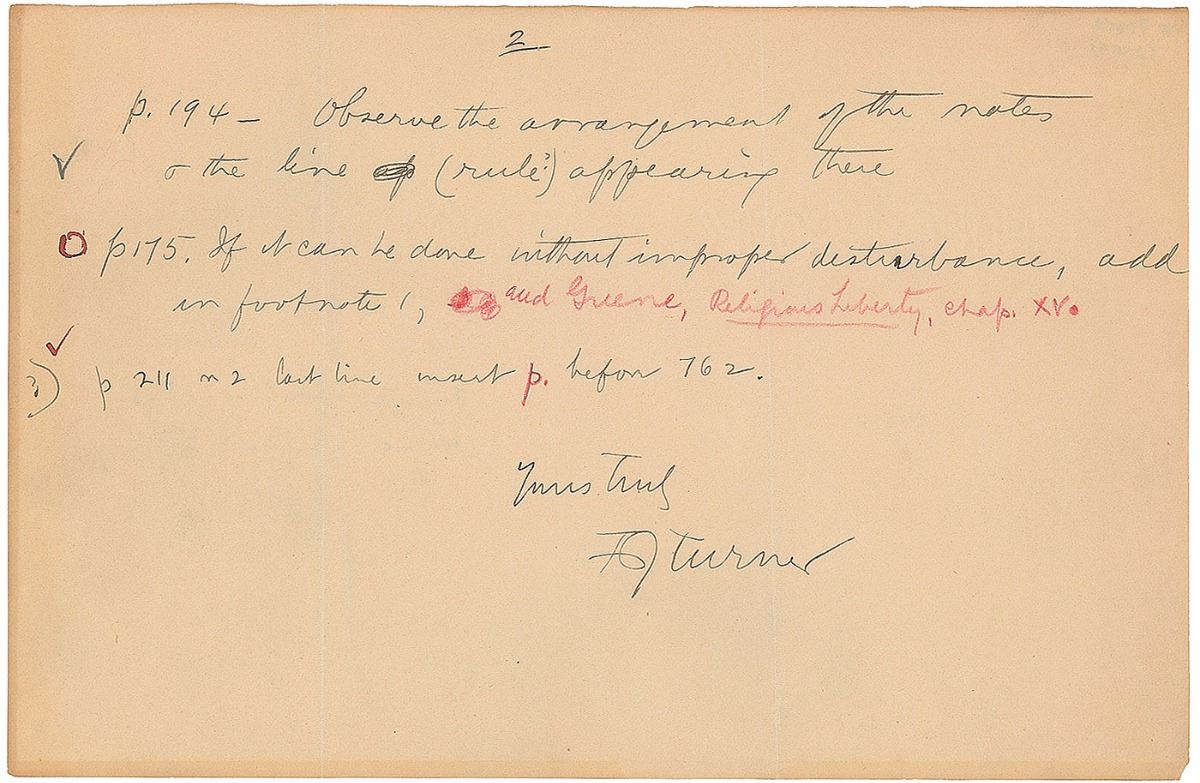 2
p. 194 — Observe the arrangement of the notes
✓ & the line (rule?) appearing there
O p175. If it can be done without improper disturbance, add
in footnote 1, and Greene, Religious Liberty, chap. XV.
✓
3) p 211 n 2 last line insert p. before 762.
Yours truly
FJ Turner